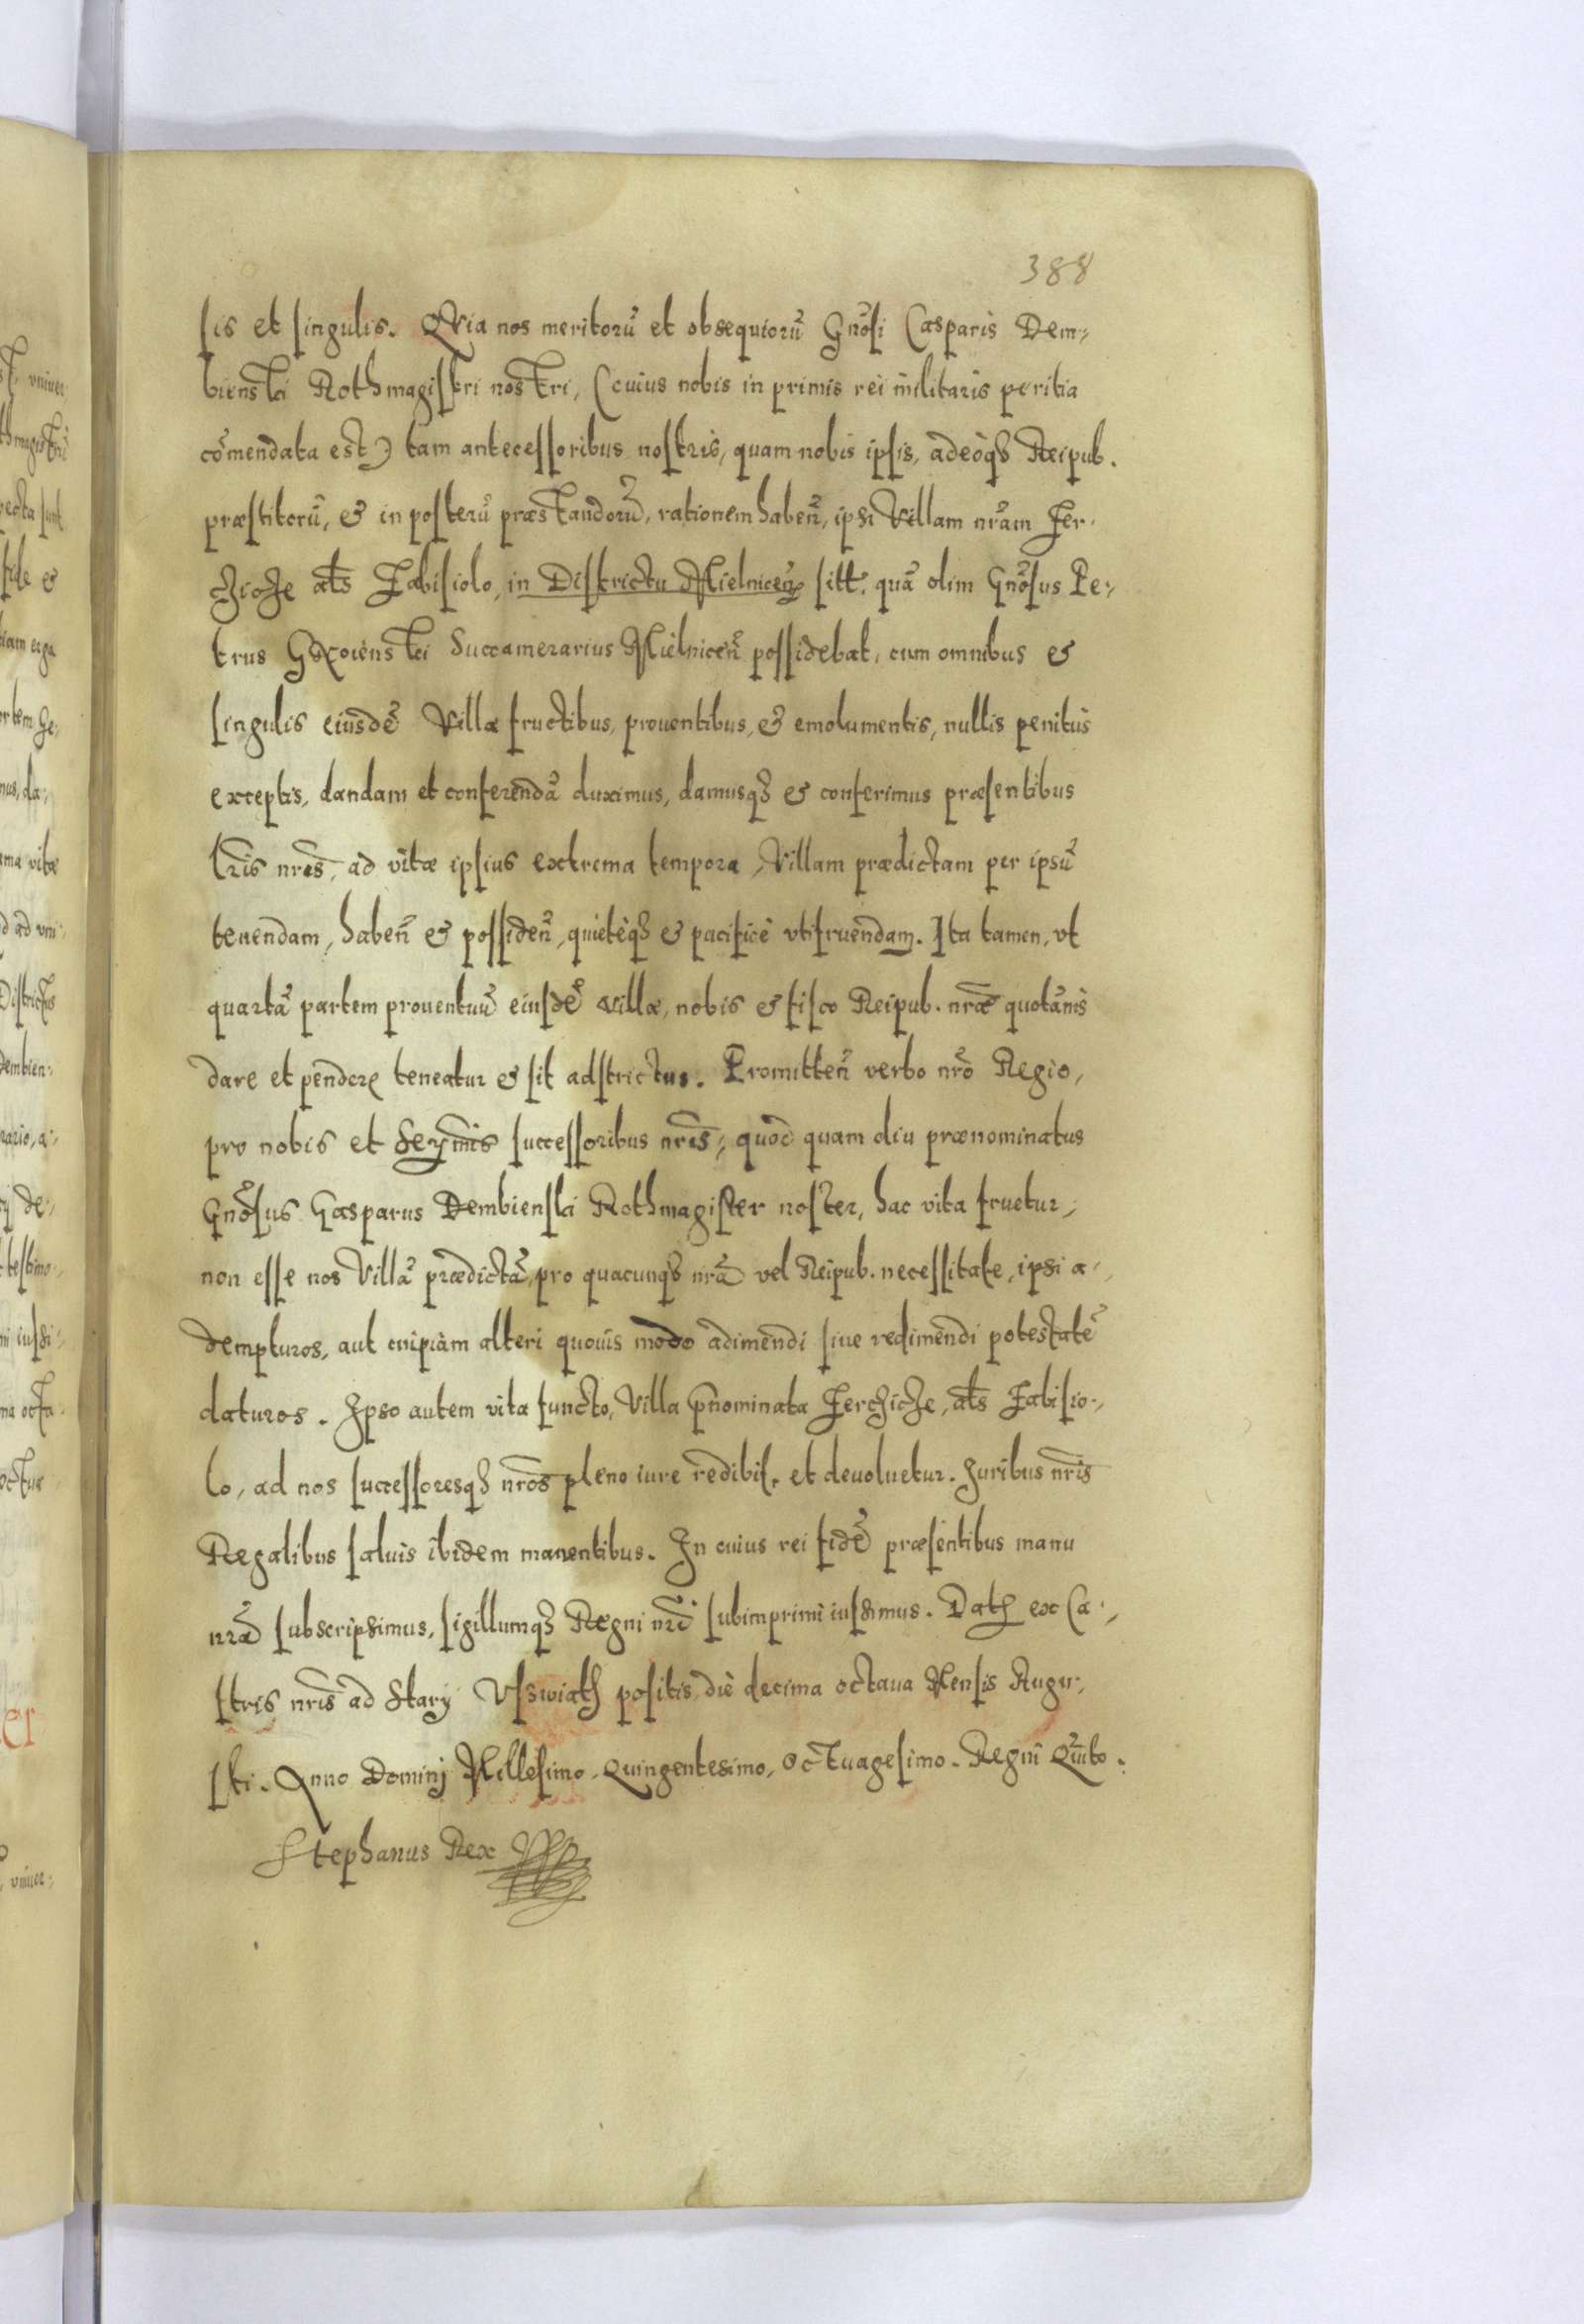 388
sis et singulis. QVia nos meritorũ et obsequiorũ Gnõsi Casparis Dem-
bienski Rothmagistri nostri, (cuius nobis in primis rei militaris peritia
cõmendata est) tam antecessoribus nostris, quam nobis ipsis, adeòqꝫ Reipub.
præstitorũ, & in posterũ præstandorũ, rationem habeñ, ipsi Villam nr̃am Fer-
chiche als̃ Fabisiolo, in Districtu Mielniceñ sitt. quã olim Gnõsus Pe-
trus Succamerarius Mielniceñ possidebat, cum omnibus &
singulis eiusdẽ Villæ fructibus, prouentibus, & emolumentis, nullis penitùs
exceptis, dandam et conferendã duximus, damusqꝫ & conferimus præsentibus
lr̃is nr̃is, ad vitæ ipsius extrema tempora, Villam prædictam per ipsũ
tenendam, habeñ & possideñ, quietèqꝫ & pacificè vtifruendam. Ita tamen, vt
quartã partem prouentuũ eiusdẽ villæ, nobis & fisco Reipub. nr̃æ quotãnis
dare et pendere teneatur & sit adstrictus. Promitteñ verbo nr̃o Regio,
pro nobis et Serm̃is successoribus nr̃is, quod quam diu prænominatus
Gnõsus Gasparus Dembienski Rothmagister noster, hac vita fruetur,
non esse nos Villã prædictã, pro quacunqꝫ nr̃a vel Reipub. necessitate, ipsi a-
dempturos, aut cuipiàm alteri quouis modo adimendi siue redimendi potestatẽ
daturos. Ipso autem vita functo, Villa p̃nominata Ferchiche, als̃ Fabisio-
lo, ad nos successoresqꝫ nr̃os pleno iure redibit, et deuoluetur. Iuribus nr̃is
Regalibus saluis ibidem manentibus. In cuius rei fidẽ præsentibus manu
nr̃a subscripsimus, sigillumqꝫ Regni nr̃i subimprimi iussimus. Datꝫ ex Ca-
stris nr̃is ad Stary Vswiath positis, die decima octaua Mensis Augu-
sti. Anno Dominj Millesimo, Quingentesimo, Octuagesimo. Regni Qũito.
Stephanus Rex